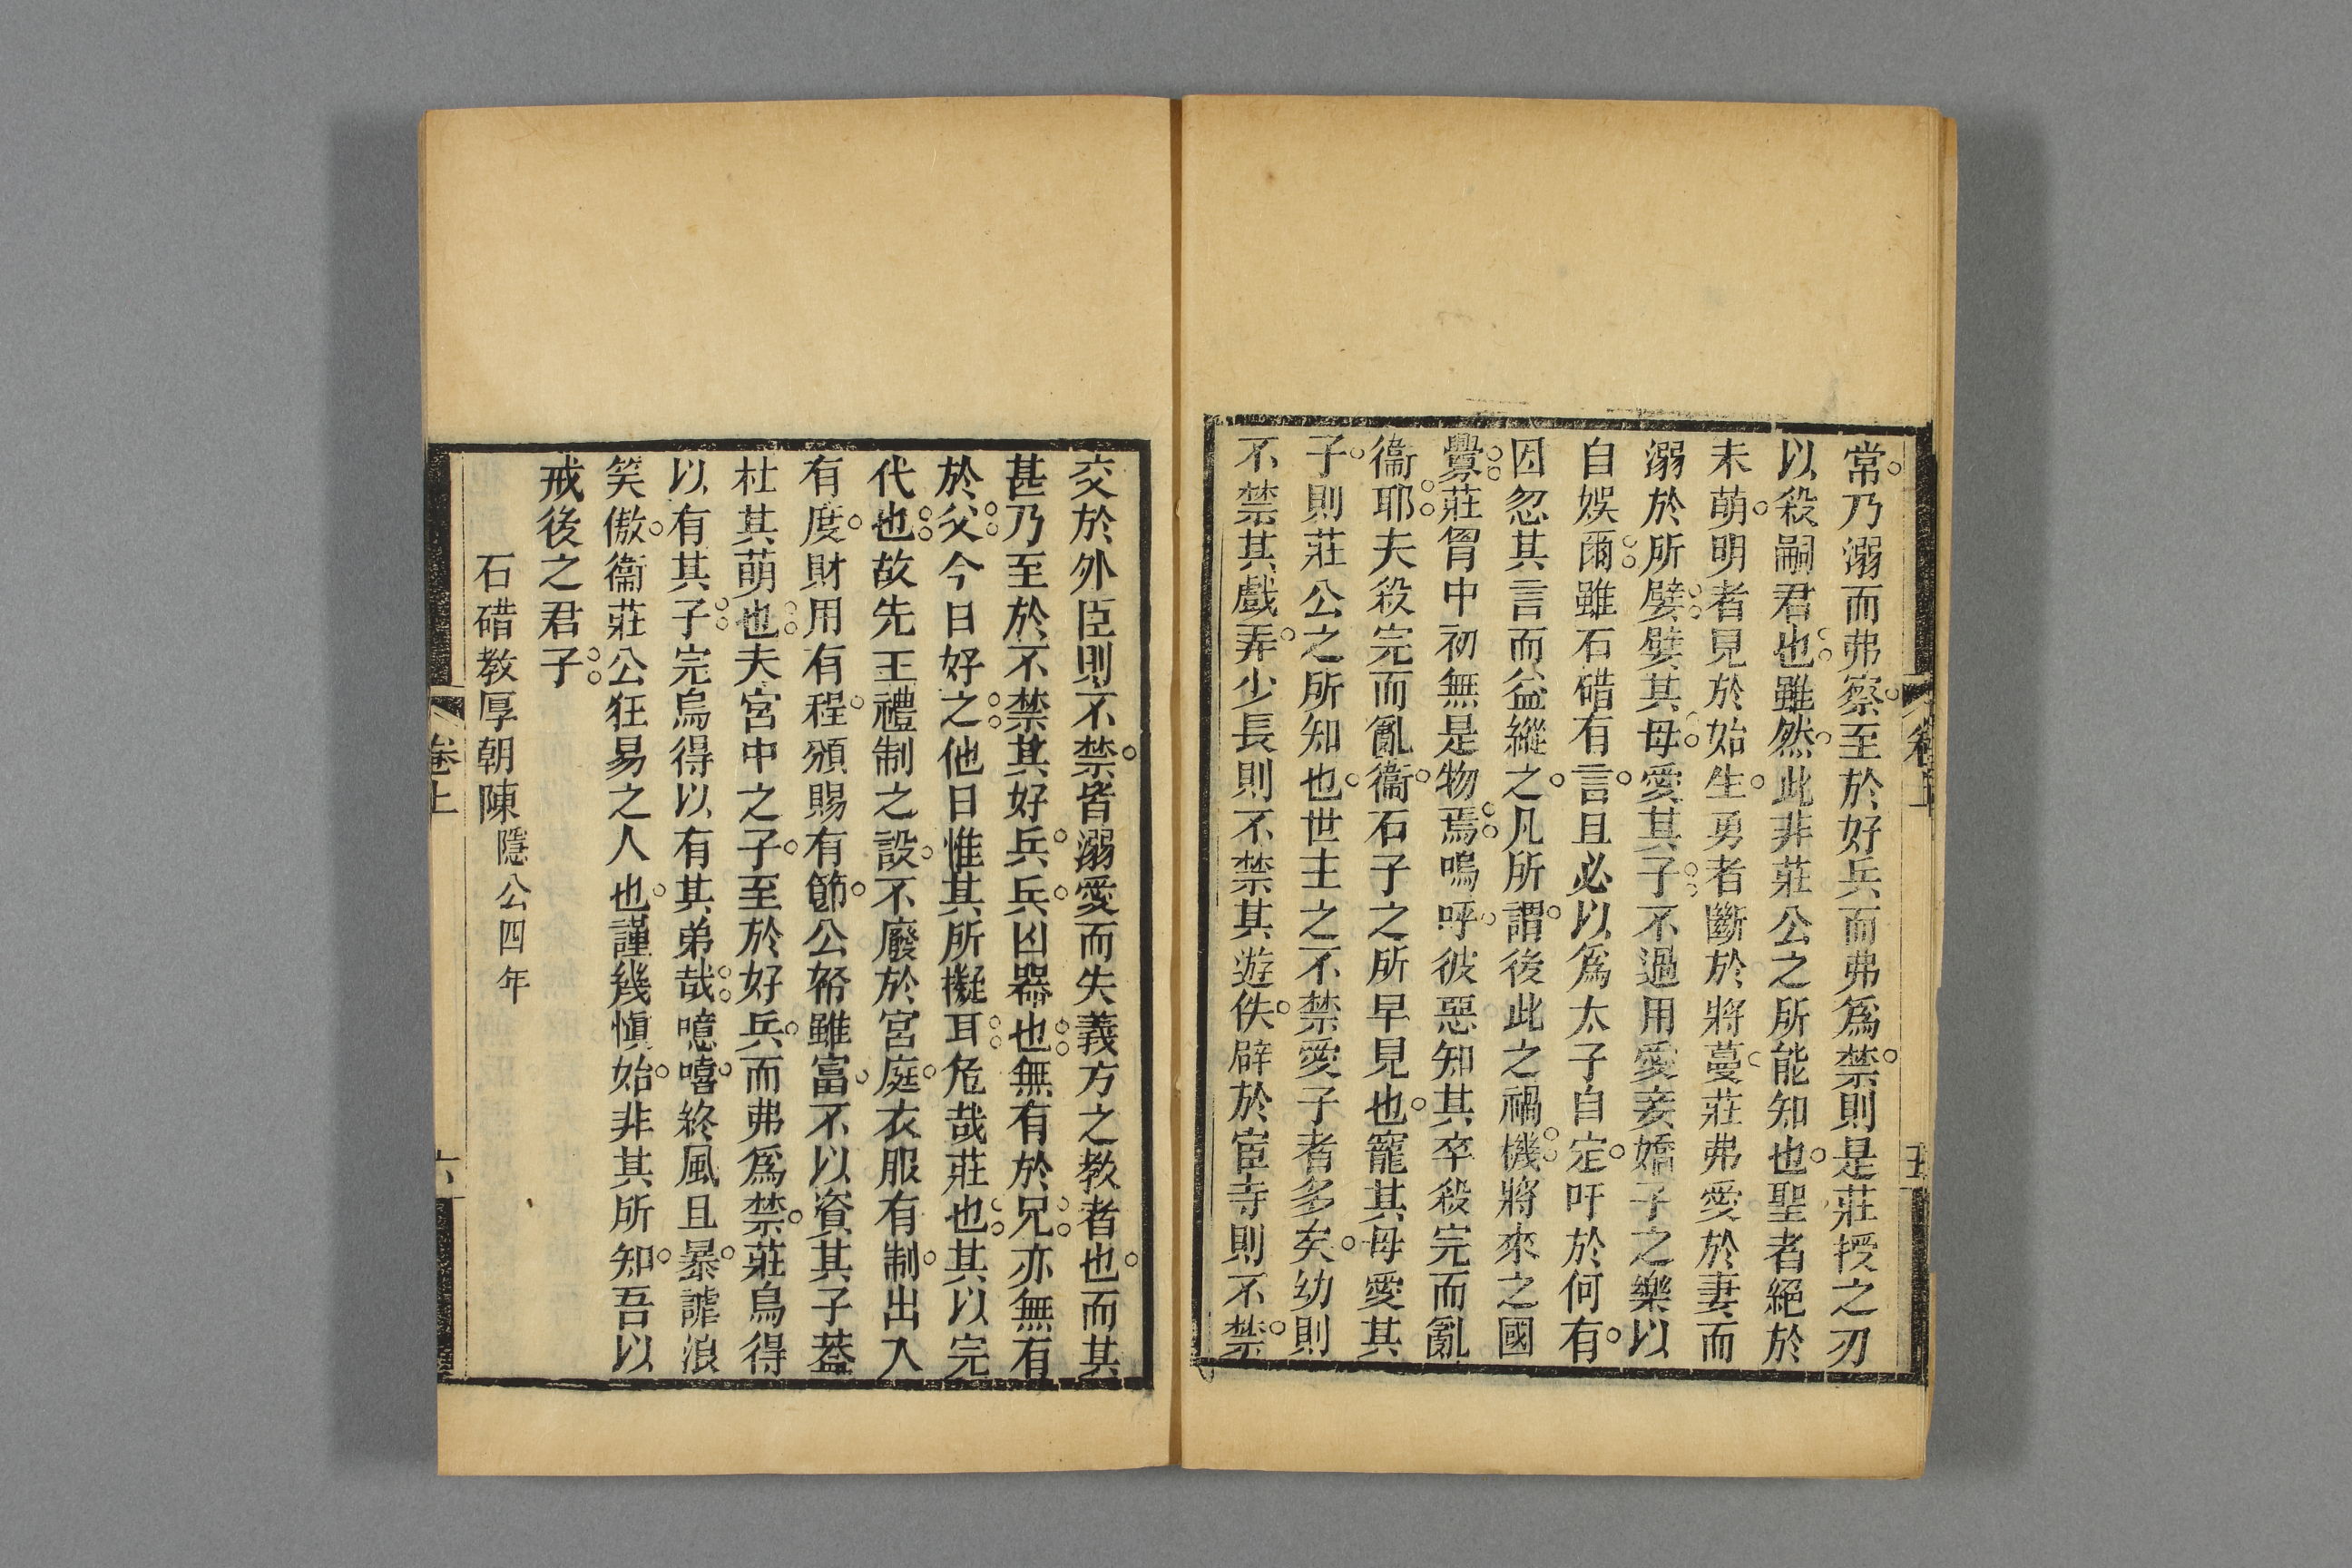 常乃溺而弗察至於好兵而弗爲禁則是莊授之刃
以殺嗣君也雖然此非莊公之所能知也聖者絕於
未萌明者見於始生勇者斷於將蔓莊弗愛於妻而
溺於所嬖嬖其母愛其子不過用愛妾嬌子之樂以
自娛爾雖石碏有言且必以爲太子自定吁於何有
因忽其言而益縱之凡所謂後此之禍機將來之國
釁莊胷中初無是物焉嗚呼彼惡知其卒殺完而亂
衞耶夫殺完而亂衞石子之所早見也寵其母愛其
子則莊公之所知也世主之不禁愛子者多矣幼則
不禁其戲弄少長則不禁其遊佚辟於宦寺則不禁
卷上
五
交於外臣則不禁皆溺愛而失義方之教者也而其
甚乃至於不禁其好兵兵凶器也無有於兄亦無有
於父今日好之他日惟其所擬耳危哉莊也其以完
代也故先王禮制之設不廢於宮庭衣服有制出入
有度財用有程頒賜有節公帑雖富不以資其子葢
杜其萌也夫宮中之子至於好兵而弗爲禁莊烏得
以有其子完烏得以有其弟哉噫嘻終風且暴謔浪
笑傲衞莊公狂易之人也謹幾愼始非其所知吾以
戒後之君子
石碏教厚朝陳隱公四年
卷上
六